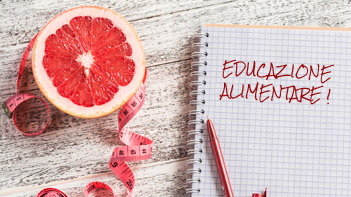 EDUCAZIONE
ALIMENTARE!